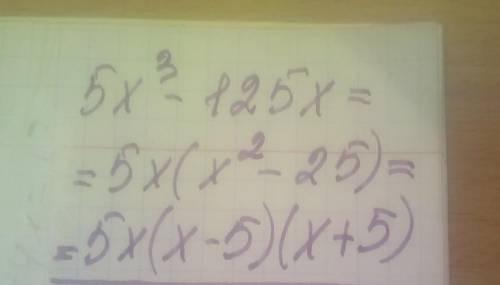 5x³ - 125x =
= 5x(x² - 25) =
= 5x(x - 5)(x + 5)